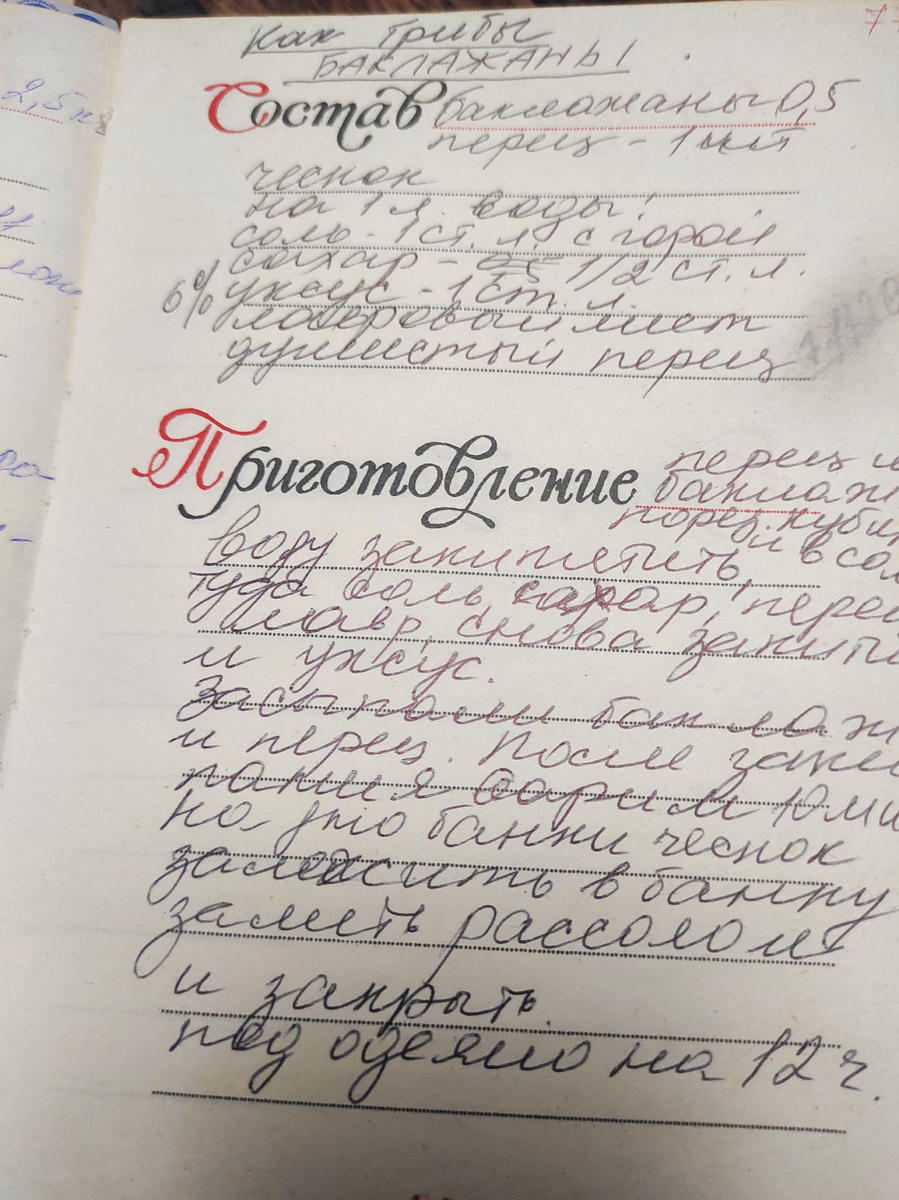 7
2,5 кг
Как грибы
БАКЛАЖАНЫ
Состав баклажаны 0,5
перец - 1 шт
чеснок
на 1 л. воды:
соль - 1 ст. л. с горой
сахар - 1/2 ст. л.
6% уксус - 1 ст. л.
лавровый лист
душистый перец
Приготовление перец и
баклаж
порез. куби
воду закипятить, и в сол
туда соль, сахар, перец
лавр, снова закипяти
и уксус.
Засыпали баклаж
и перец. После заки
пания варим 10 ми
На дно банки чеснок
заложить в банку
залить рассолом
и закрыть.
под одеяло на 12 ч.